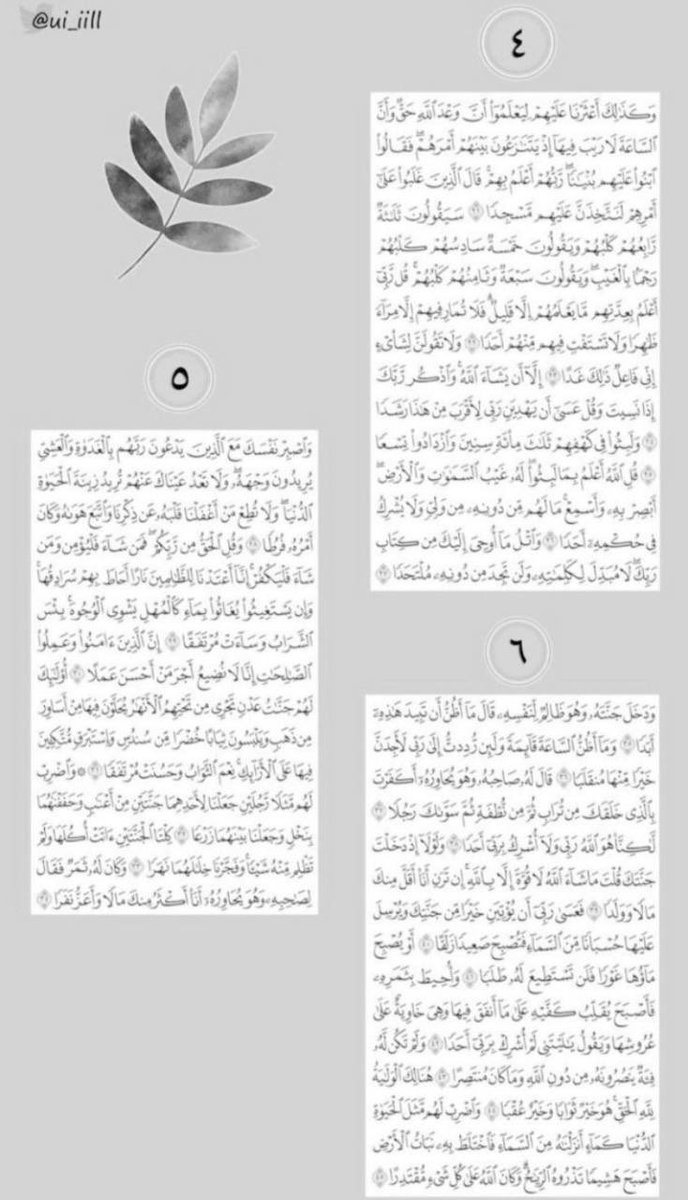 @ui_iill
٤
وَكَذَٰلِكَ أَعْثَرْنَا عَلَيْهِمْ لِيَعْلَمُوٓا۟ أَنَّ وَعْدَ ٱللَّهِ حَقٌّ وَأَنَّ
ٱلسَّاعَةَ لَا رَيْبَ فِيهَآ إِذْ يَتَنَٰزَعُونَ بَيْنَهُمْ أَمْرَهُمْ ۖ فَقَالُوا۟
ٱبْنُوا۟ عَلَيْهِم بُنْيَٰنًا ۖ رَّبُّهُمْ أَعْلَمُ بِهِمْ ۚ قَالَ ٱلَّذِينَ غَلَبُوا۟ عَلَىٰٓ
أَمْرِهِمْ لَنَتَّخِذَنَّ عَلَيْهِم مَّسْجِدًا ٢١ سَيَقُولُونَ ثَلَٰثَةٌ
رَّابِعُهُمْ كَلْبُهُمْ وَيَقُولُونَ خَمْسَةٌ سَادِسُهُمْ كَلْبُهُمْ
رَجْمًۢا بِٱلْغَيْبِ ۖ وَيَقُولُونَ سَبْعَةٌ وَثَامِنُهُمْ كَلْبُهُمْ ۚ قُل رَّبِّىٓ
أَعْلَمُ بِعِدَّتِهِم مَّا يَعْلَمُهُمْ إِلَّا قَلِيلٌ ۗ فَلَا تُمَارِ فِيهِمْ إِلَّا مِرَآءً
ظَٰهِرًا وَلَا تَسْتَفْتِ فِيهِم مِّنْهُمْ أَحَدًا ٢٢ وَلَا تَقُولَنَّ لِشَا۟ىْءٍ
إِنِّى فَاعِلٌ ذَٰلِكَ غَدًا ٢٣ إِلَّآ أَن يَشَآءَ ٱللَّهُ ۚ وَٱذْكُر رَّبَّكَ
إِذَا نَسِيتَ وَقُلْ عَسَىٰٓ أَن يَهْدِيَنِ رَبِّى لِأَقْرَبَ مِنْ هَٰذَا رَشَدًا
٢٤ وَلَبِثُوا۟ فِى كَهْفِهِمْ ثَلَٰثَ مِا۟ئَةٍ سِنِينَ وَٱزْدَادُوا۟ تِسْعًا
٢٥ قُلِ ٱللَّهُ أَعْلَمُ بِمَا لَبِثُوا۟ ۖ لَهُۥ غَيْبُ ٱلسَّمَٰوَٰتِ وَٱلْأَرْضِ ۖ
أَبْصِرْ بِهِۦ وَأَسْمِعْ ۚ مَا لَهُم مِّن دُونِهِۦ مِن وَلِىٍّ وَلَا يُشْرِكُ
فِى حُكْمِهِۦٓ أَحَدًا ٢٦ وَٱتْلُ مَآ أُوحِىَ إِلَيْكَ مِن كِتَابِ
رَبِّكَ ۖ لَا مُبَدِّلَ لِكَلِمَٰتِهِۦ وَلَن تَجِدَ مِن دُونِهِۦ مُلْتَحَدًا ٢٧
٥
وَٱصْبِرْ نَفْسَكَ مَعَ ٱلَّذِينَ يَدْعُونَ رَبَّهُم بِٱلْغَدَوٰةِ وَٱلْعَشِىِّ
يُرِيدُونَ وَجْهَهُۥ ۖ وَلَا تَعْدُ عَيْنَاكَ عَنْهُمْ تُرِيدُ زِينَةَ ٱلْحَيَوٰةِ
ٱلدُّنْيَا ۖ وَلَا تُطِعْ مَنْ أَغْفَلْنَا قَلْبَهُۥ عَن ذِكْرِنَا وَٱتَّبَعَ هَوَىٰهُ وَكَانَ
أَمْرُهُۥ فُرُطًا ٢٨ وَقُلِ ٱلْحَقُّ مِن رَّبِّكُمْ ۖ فَمَن شَآءَ فَلْيُؤْمِن وَمَن
شَآءَ فَلْيَكْفُرْ ۚ إِنَّآ أَعْتَدْنَا لِلظَّٰلِمِينَ نَارًا أَحَاطَ بِهِمْ سُرَادِقُهَا ۚ
وَإِن يَسْتَغِيثُوا۟ يُغَاثُوا۟ بِمَآءٍ كَٱلْمُهْلِ يَشْوِى ٱلْوُجُوهَ ۚ بِئْسَ
ٱلشَّرَابُ وَسَآءَتْ مُرْتَفَقًا ٢٩ إِنَّ ٱلَّذِينَ ءَامَنُوا۟ وَعَمِلُوا۟
ٱلصَّٰلِحَٰتِ إِنَّا لَا نُضِيعُ أَجْرَ مَنْ أَحْسَنَ عَمَلًا ٣٠ أُو۟لَٰٓئِكَ
لَهُمْ جَنَّٰتُ عَدْنٍ تَجْرِى مِن تَحْتِهِمُ ٱلْأَنْهَٰرُ يُحَلَّوْنَ فِيهَا مِنْ أَسَاوِرَ
مِن ذَهَبٍ وَيَلْبَسُونَ ثِيَابًا خُضْرًا مِّن سُندُسٍ وَإِسْتَبْرَقٍ مُّتَّكِـِٔينَ
فِيهَا عَلَى ٱلْأَرَآئِكِ ۚ نِعْمَ ٱلثَّوَابُ وَحَسُنَتْ مُرْتَفَقًا ٣١ ۞ وَٱضْرِبْ
لَهُم مَّثَلًا رَّجُلَيْنِ جَعَلْنَا لِأَحَدِهِمَا جَنَّتَيْنِ مِنْ أَعْنَٰبٍ وَحَفَفْنَٰهُمَا
بِنَخْلٍ وَجَعَلْنَا بَيْنَهُمَا زَرْعًا ٣٢ كِلْتَا ٱلْجَنَّتَيْنِ ءَاتَتْ أُكُلَهَا وَلَمْ
تَظْلِم مِّنْهُ شَيْـًٔا ۚ وَفَجَّرْنَا خِلَٰلَهُمَا نَهَرًا ٣٣ وَكَانَ لَهُۥ ثَمَرٌ فَقَالَ
لِصَٰحِبِهِۦ وَهُوَ يُحَاوِرُهُۥٓ أَنَا۠ أَكْثَرُ مِنكَ مَالًا وَأَعَزُّ نَفَرًا ٣٤
٦
وَدَخَلَ جَنَّتَهُۥ وَهُوَ ظَالِمٌ لِّنَفْسِهِۦ قَالَ مَآ أَظُنُّ أَن تَبِيدَ هَٰذِهِۦٓ
أَبَدًا ٣٥ وَمَآ أَظُنُّ ٱلسَّاعَةَ قَآئِمَةً وَلَئِن رُّدِدتُّ إِلَىٰ رَبِّى لَأَجِدَنَّ
خَيْرًا مِّنْهَا مُنقَلَبًا ٣٦ قَالَ لَهُۥ صَاحِبُهُۥ وَهُوَ يُحَاوِرُهُۥٓ أَكَفَرْتَ
بِٱلَّذِى خَلَقَكَ مِن تُرَابٍ ثُمَّ مِن نُّطْفَةٍ ثُمَّ سَوَّىٰكَ رَجُلًا ٣٧
لَّٰكِنَّا۠ هُوَ ٱللَّهُ رَبِّى وَلَآ أُشْرِكُ بِرَبِّىٓ أَحَدًا ٣٨ وَلَوْلَآ إِذْ دَخَلْتَ
جَنَّتَكَ قُلْتَ مَا شَآءَ ٱللَّهُ لَا قُوَّةَ إِلَّا بِٱللَّهِ ۚ إِن تَرَنِ أَنَا۠ أَقَلَّ مِنكَ
مَالًا وَوَلَدًا ٣٩ فَعَسَىٰ رَبِّىٓ أَن يُؤْتِيَنِ خَيْرًا مِّن جَنَّتِكَ وَيُرْسِلَ
عَلَيْهَا حُسْبَانًا مِّنَ ٱلسَّمَآءِ فَتُصْبِحَ صَعِيدًا زَلَقًا ٤٠ أَوْ يُصْبِحَ
مَآؤُهَا غَوْرًا فَلَن تَسْتَطِيعَ لَهُۥ طَلَبًا ٤١ وَأُحِيطَ بِثَمَرِهِۦ
فَأَصْبَحَ يُقَلِّبُ كَفَّيْهِ عَلَىٰ مَآ أَنفَقَ فِيهَا وَهِىَ خَاوِيَةٌ عَلَىٰ
عُرُوشِهَا وَيَقُولُ يَٰلَيْتَنِى لَمْ أُشْرِكْ بِرَبِّىٓ أَحَدًا ٤٢ وَلَمْ تَكُن لَّهُۥ
فِئَةٌ يَنصُرُونَهُۥ مِن دُونِ ٱللَّهِ وَمَا كَانَ مُنتَصِرًا ٤٣ هُنَالِكَ ٱلْوَلَٰيَةُ
لِلَّهِ ٱلْحَقِّ ۚ هُوَ خَيْرٌ ثَوَابًا وَخَيْرٌ عُقْبًا ٤٤ وَٱضْرِبْ لَهُم مَّثَلَ ٱلْحَيَوٰةِ
ٱلدُّنْيَا كَمَآءٍ أَنزَلْنَٰهُ مِنَ ٱلسَّمَآءِ فَٱخْتَلَطَ بِهِۦ نَبَاتُ ٱلْأَرْضِ
فَأَصْبَحَ هَشِيمًا تَذْرُوهُ ٱلرِّيَٰحُ ۗ وَكَانَ ٱللَّهُ عَلَىٰ كُلِّ شَىْءٍ مُّقْتَدِرًا ٤٥